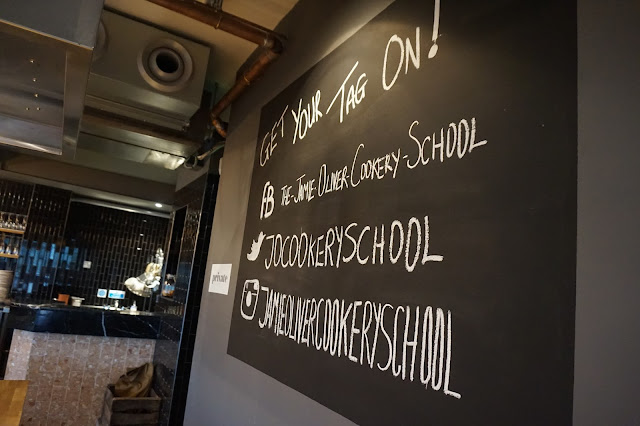 GET YOUR TAG ON!
FB THE-JAMIE-OLIVER-COOKERY-SCHOOL
JOCOOKERYSCHOOL
JAMIEOLIVERCOOKERYSCHOOL
private